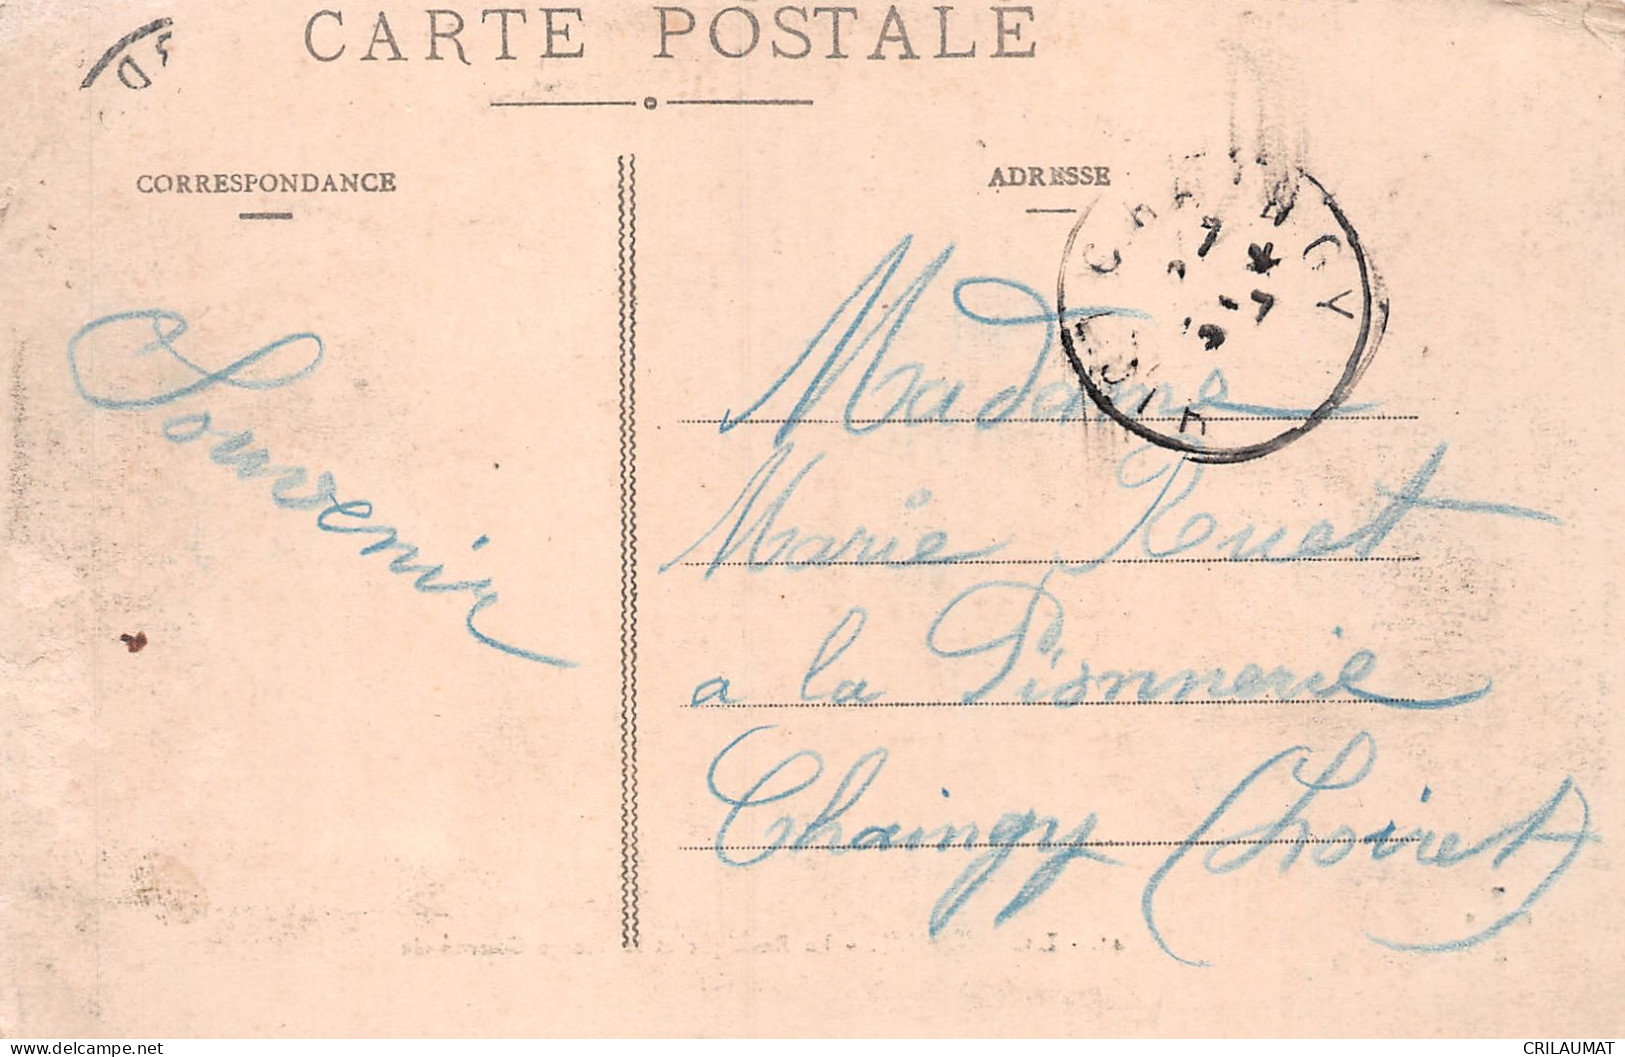 CARTE POSTALE
CORRESPONDANCE
ADRESSE
CHAINGY
Souvenir
Madame
Marie Ruet
a la Pionnerie
Chaingy (Loiret)
https://www.delcampe.net
CRILAUMAT